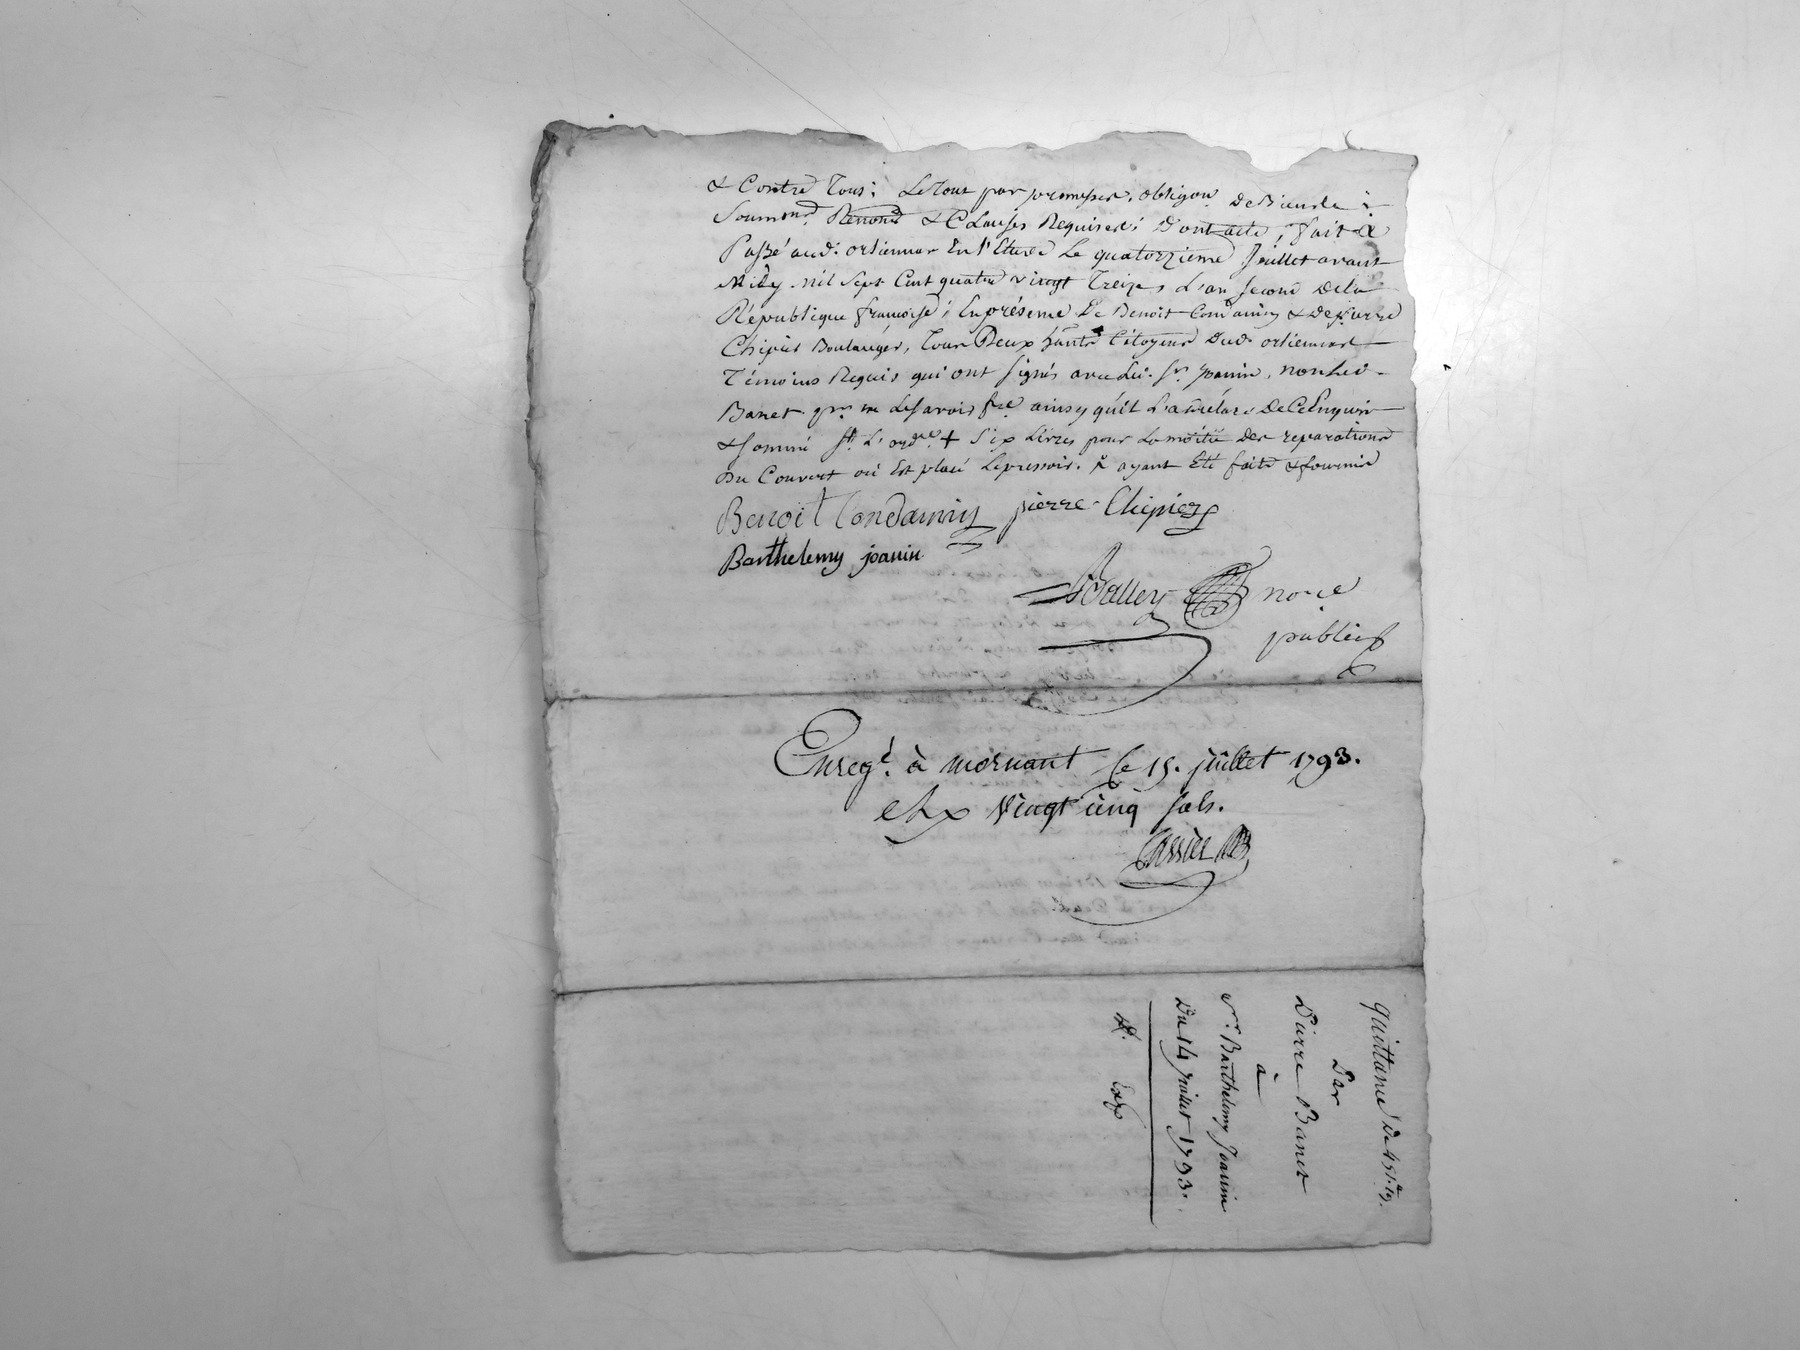 & Contre Tous; Le Tout par promesses, obligaon. De Biens de
Soumons. Renonce & Clauses Requises; Dont acte, fait &
Passé aud. orliennas En l'Etude Le quatorzieme Juillet avant
Midy. mil Sept Cent quatre vingt Treize, L'an second De la
République françoise; En présence De Benoit Condamin & De pierre
Chipier Boulanger, Tous Deux habts Citoyens Dud. orliennas
Témoins Requis qui ont signés avec Led. Sr. Joanin, non Led.
Banet pr. ne Le savoir fre. ainsy qu'il L'a déclaré De Ce Enquis
& sommé St. L'ordce. + Six Livres pour La moitié Des reparations
Du Couvert où Est placé Le pressoir. & ayant Eté faite & fournie
Benoit Condamin pierre Chipier
Barthelemy joanin
Balley nore
public
Enregé. à mornant le 15. juillet 1793.
vingt cinq sols.
quittance De
Par
Pierre Banet
à
Sr. Barthelemy Joanin
Du 14 Juillet 1793.
Exp